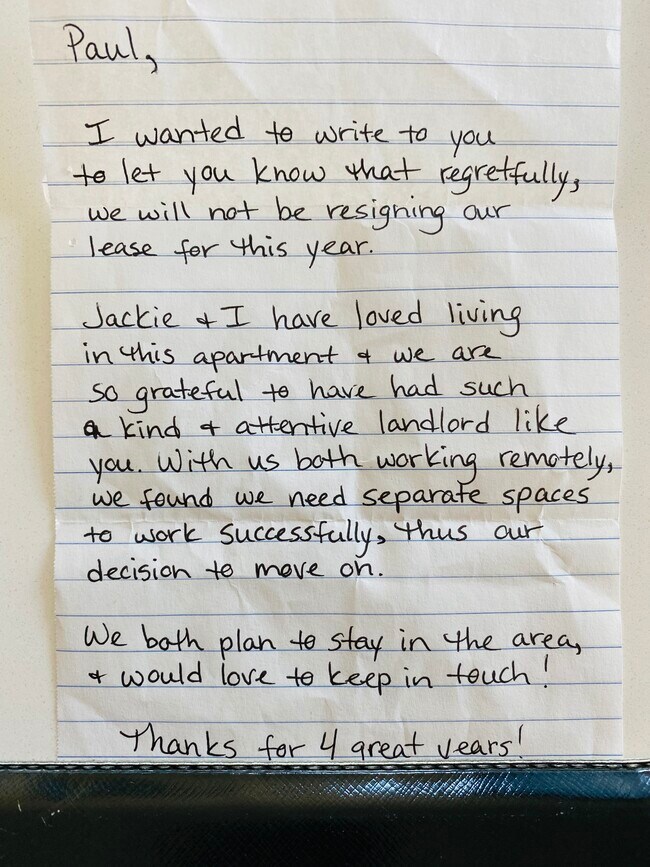 Paul,
I wanted to write to you
to let you know that regretfully,
we will not be resigning our
lease for this year.
Jackie & I have loved living
in this apartment & we are
so grateful to have had such
a kind & attentive landlord like
you. With us both working remotely,
we found we need separate spaces
to work successfully, thus our
decision to move on.
We both plan to stay in the area,
& would love to keep in touch!
Thanks for 4 great years!